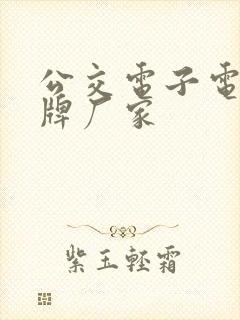 公交電子電
牌厂家
紫玉輕霜